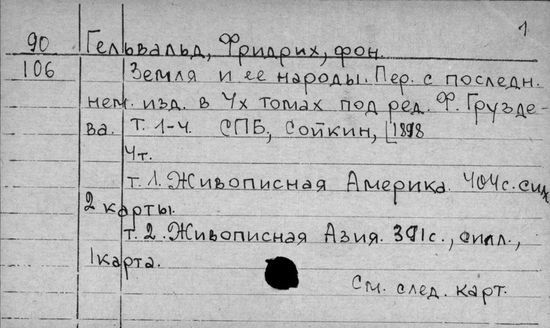 1
90 Гельвальд, Фридрих, фон.
106 Земля и ее народы. Пер. с последн.
нем. изд. в 4х томах под ред. Ф. Грузде-
ва. т. 1-4. СПБ, Сойкин, [1898
4т.
т. 1. Живописная Америка. 404с. сил
2 карты.
т. 2. Живописная Азия. 391с., силл.,
1 карта.
См. след. карт.